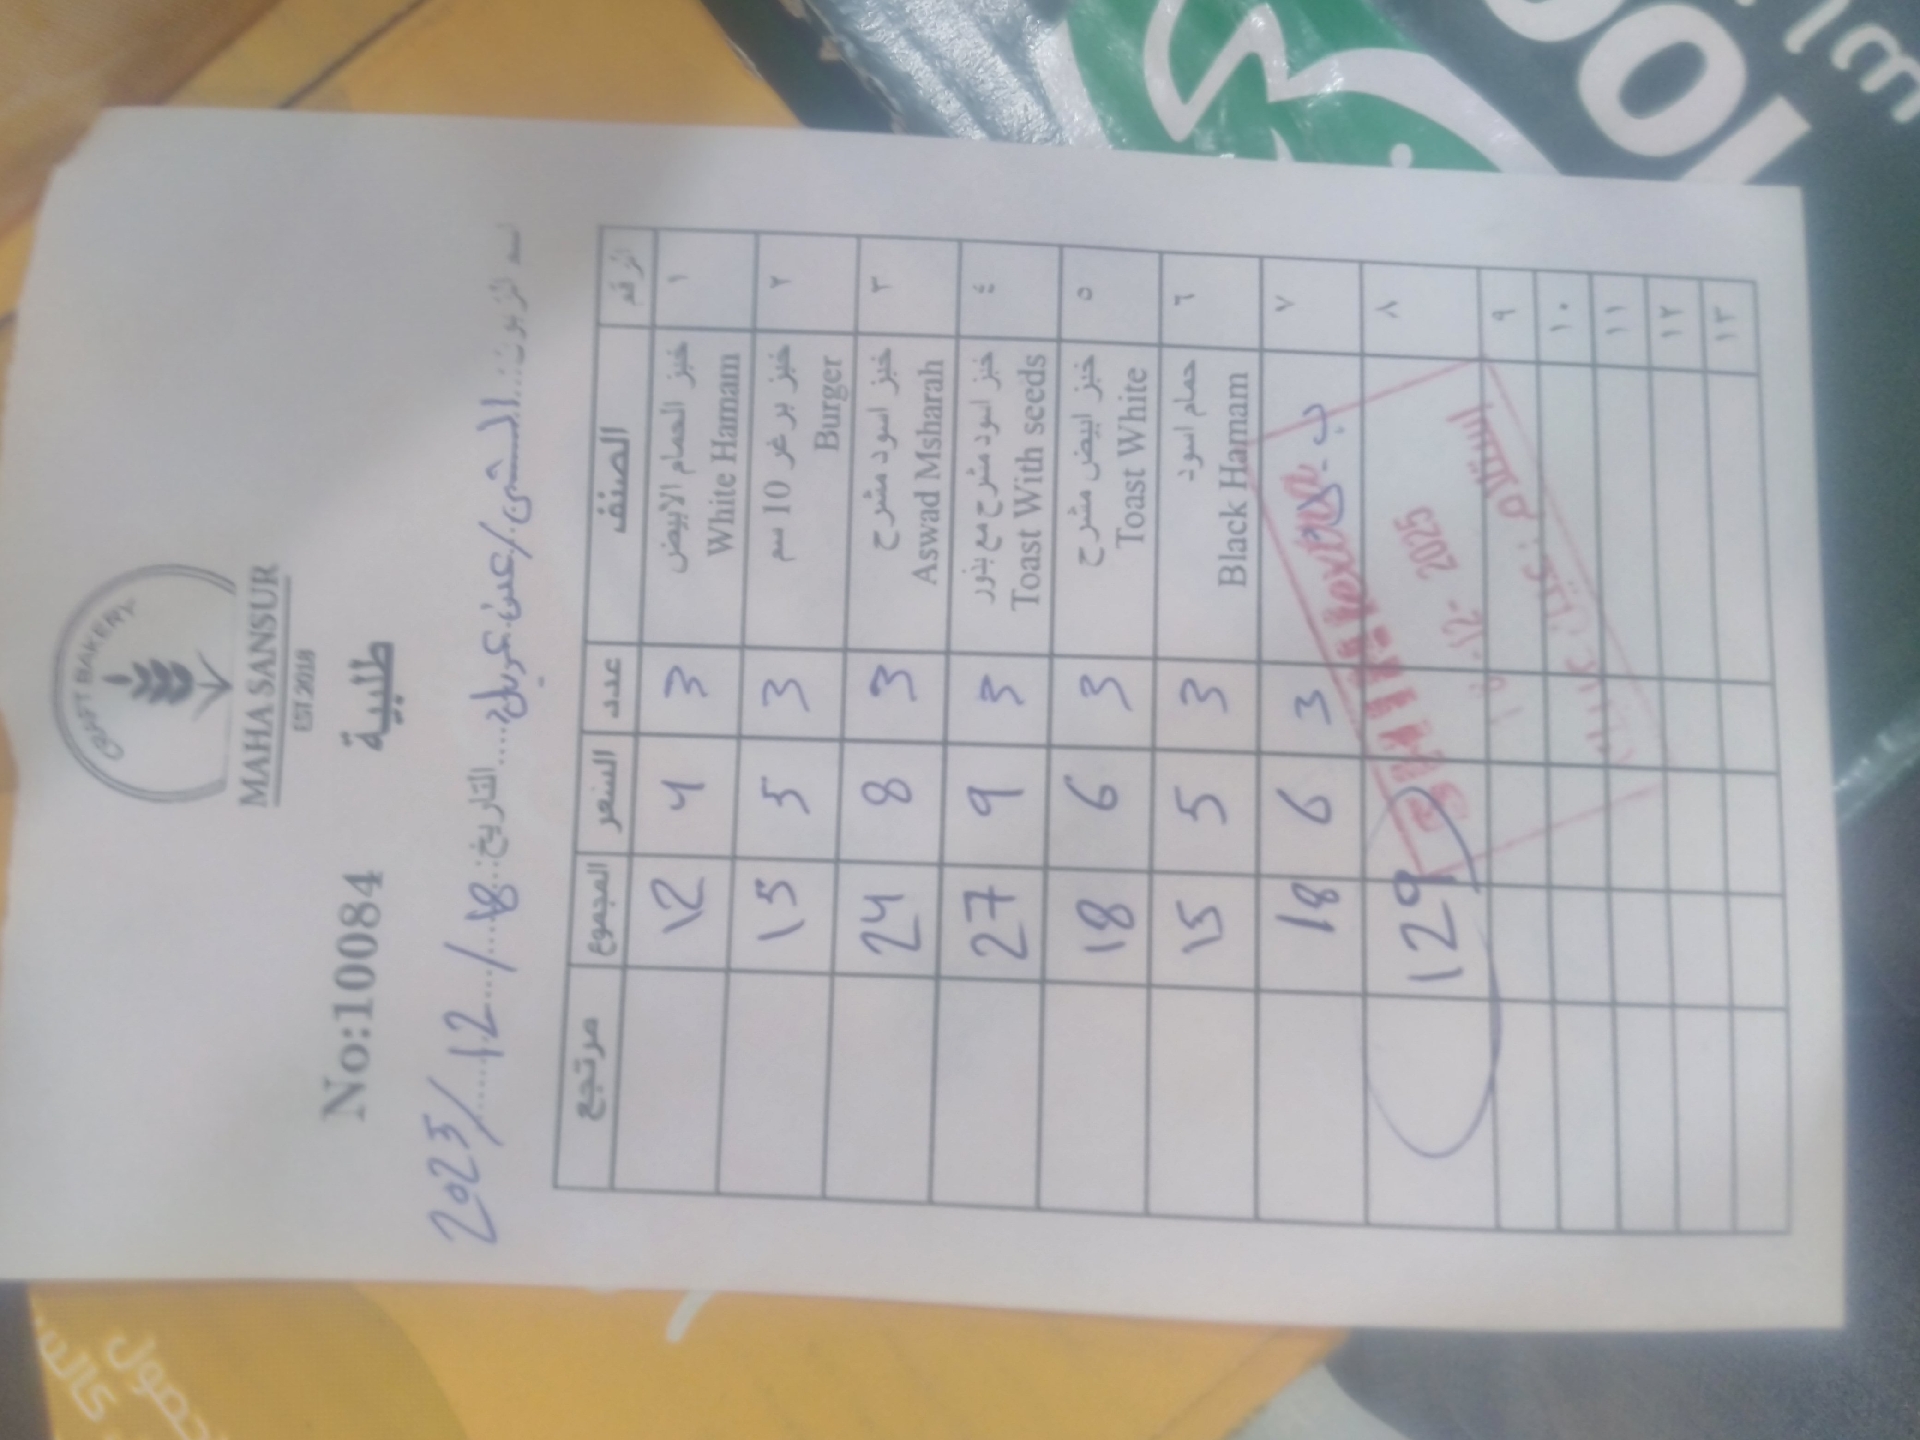 CRAFT BAKERY
MAHA SANSUR
EST.2018
No:10084
طلبية
التاريخ: 2025/12/18
الرقم الصنف عدد السعر المجموع مرتجع
١ خبز الحمام الابيض 3 4 12
White Hamam
٢ خبز برغر 10 سم 3 5 15
Burger
٣ خبز اسود مشرح 3 8 24
Aswad Msharah
٤ خبز اسود مشرح مع بذور 3 9 27
Toast With seeds
٥ خبز ابيض مشرح 3 6 18
Toast White
٦ حمام اسود 3 5 15
Black Hamam
٧ 3 6 18
٨ 129
٩
١٠
١١
١٢
١٣
18 -12- 2025
استلام